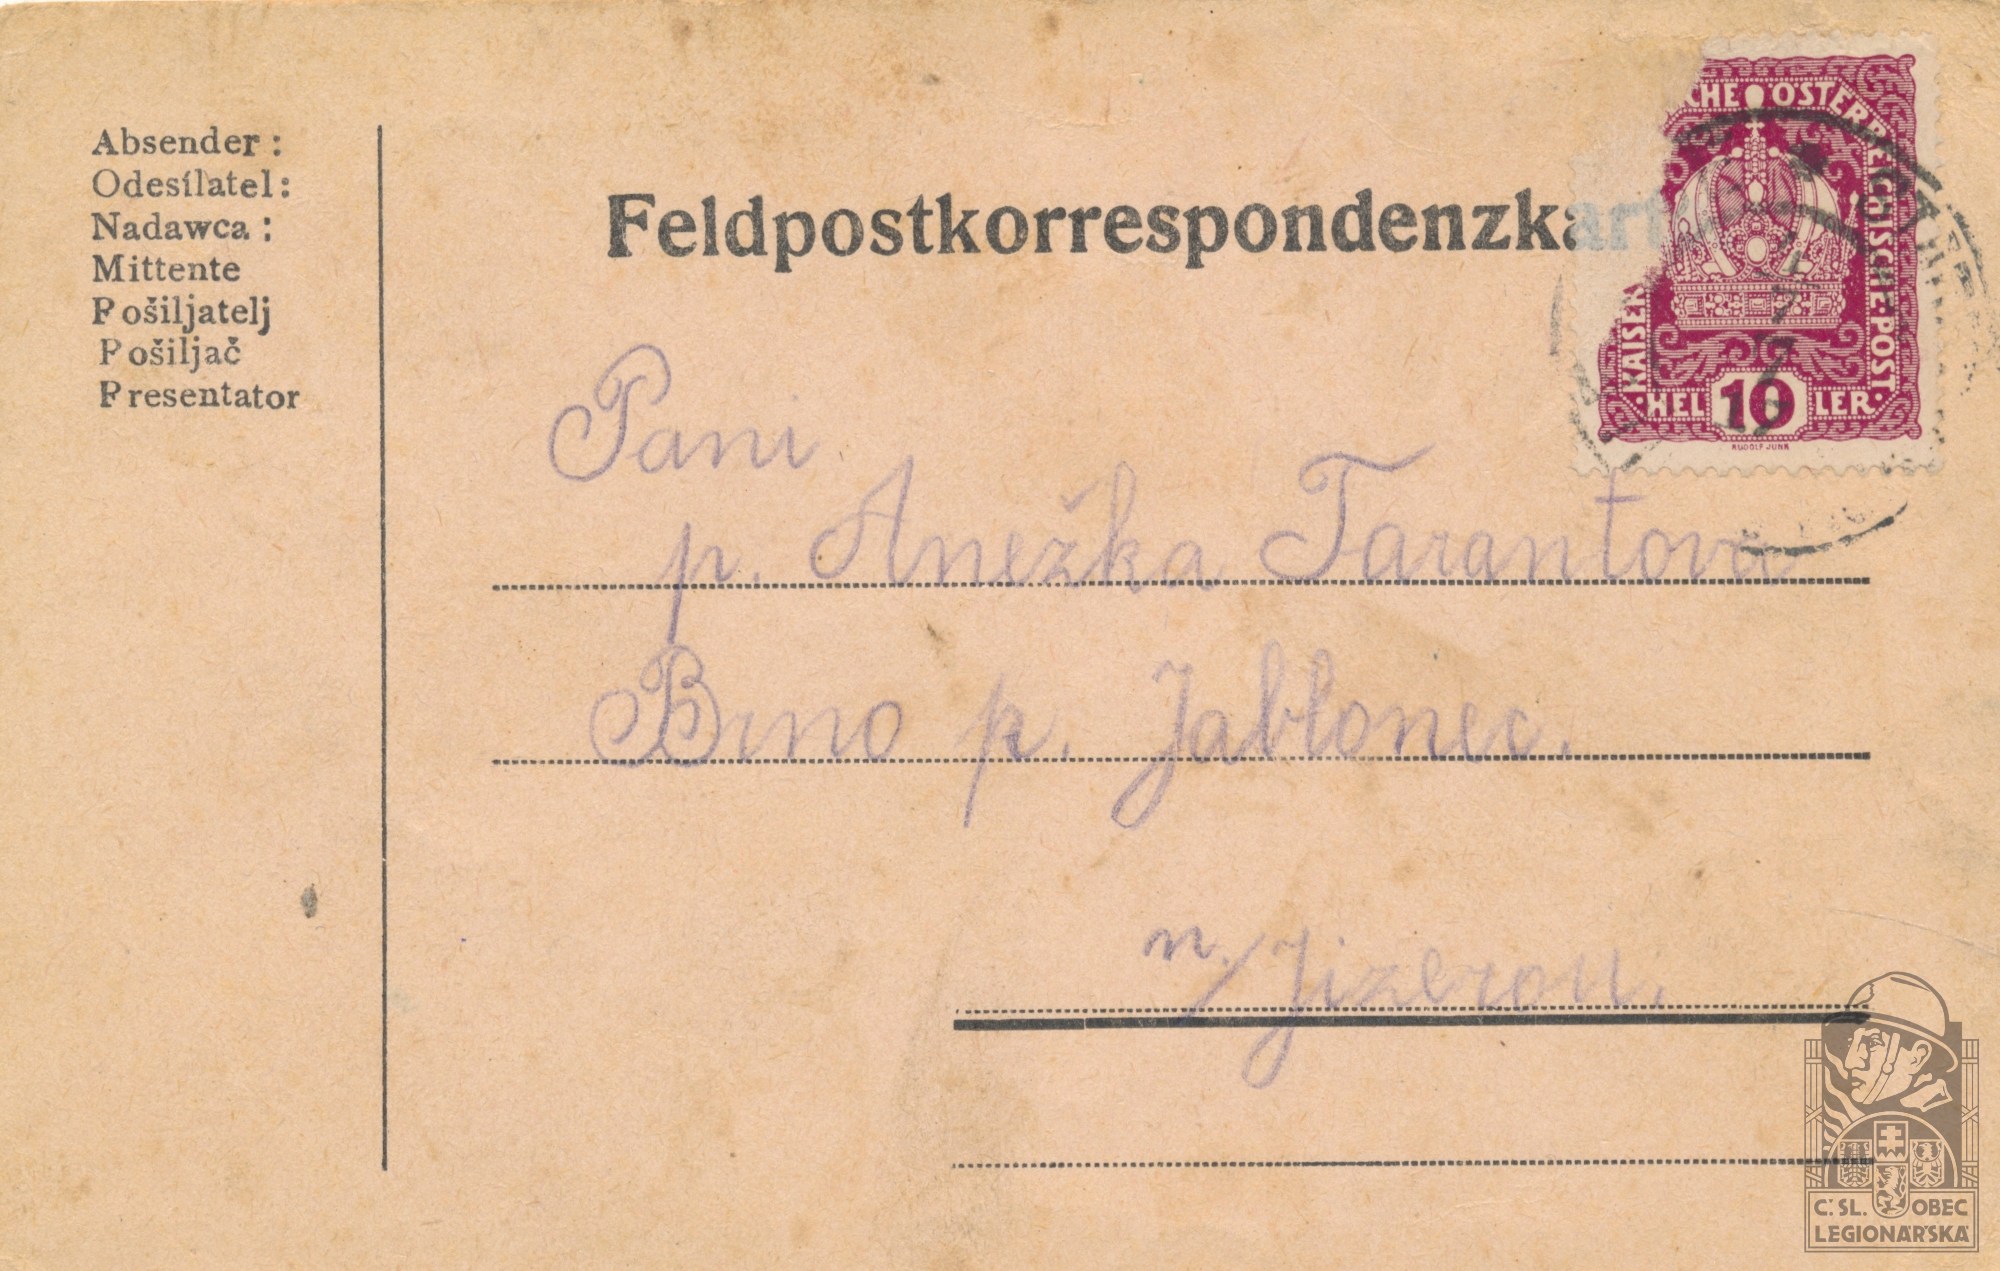 Absender :
Odesílatel:
Nadawca :
Mittente
Pošiljatelj
Pošiljač
Presentator
Feldpostkorrespondenzkart
KAISER CHE ÖSTERREICHISCHE·POST·
HEL 10 LER
RUDOLF JUNK
Paní
p. Anežka Tarantova
Brno p. Jablonec.
n./Jizerou.
Č. SL. OBEC
LEGIONÁŘSKÁ